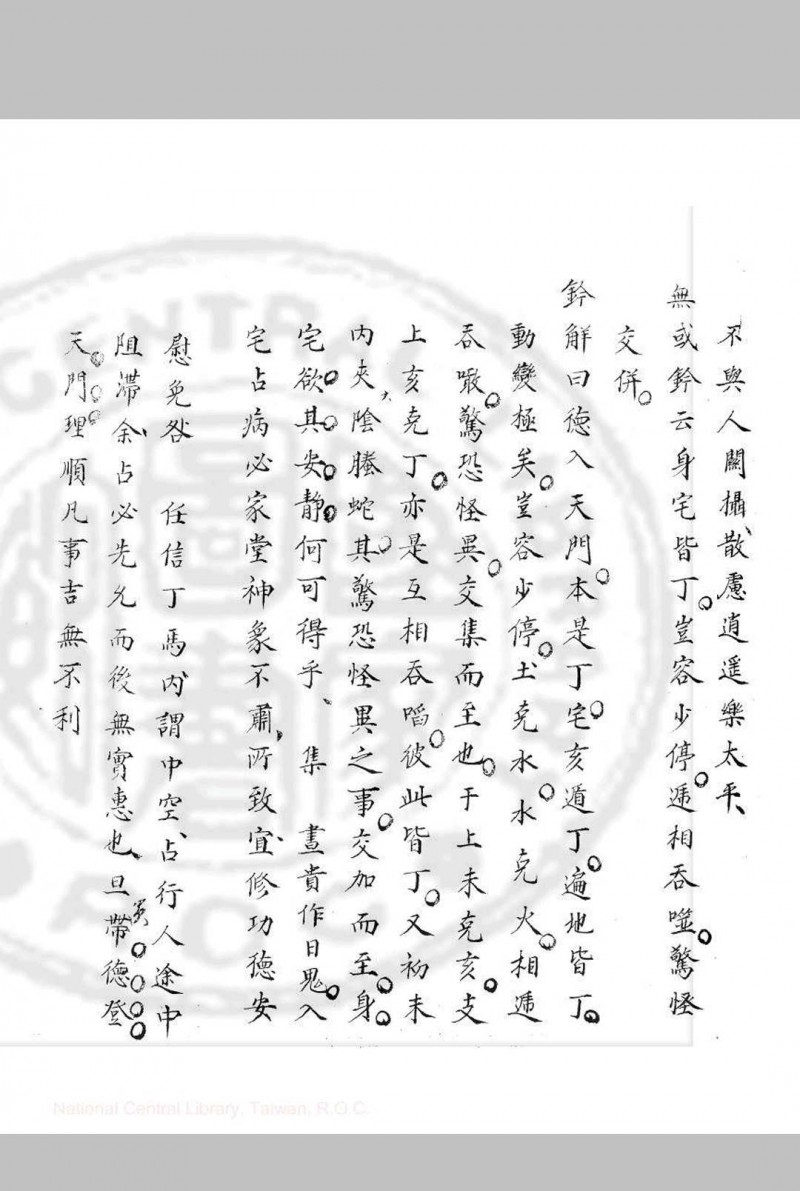 不與人關攝散慮逍遥樂太平、
無或鈐云身宅皆丁。豈容少停。遞相吞噬。驚怪
交併。
鈐解曰德入天門。本是丁宅。亥遁丁。遍地皆丁。
動變極矣。豈容少停。土克水。水克火。相遞
吞噉。驚恐怪異。交集而至也。于上未克亥。支
上亥克丁。亦是互相吞啗。彼此皆丁。又初末
内夾陰螣蛇。其驚恐怪異之事。交加而至。身。
宅欲其安静。何可得乎、 集 晝貴作日鬼。入
宅占病必家堂神象不肅、所致、宜修功德安
慰免咎 任信丁馬、内謂中空、占行人途中
阻滯、余占必先允而後無實惠也、旦帶德登
天。門。理順凡事吉無不利
National Central Library, Taiwan, R.O.C.